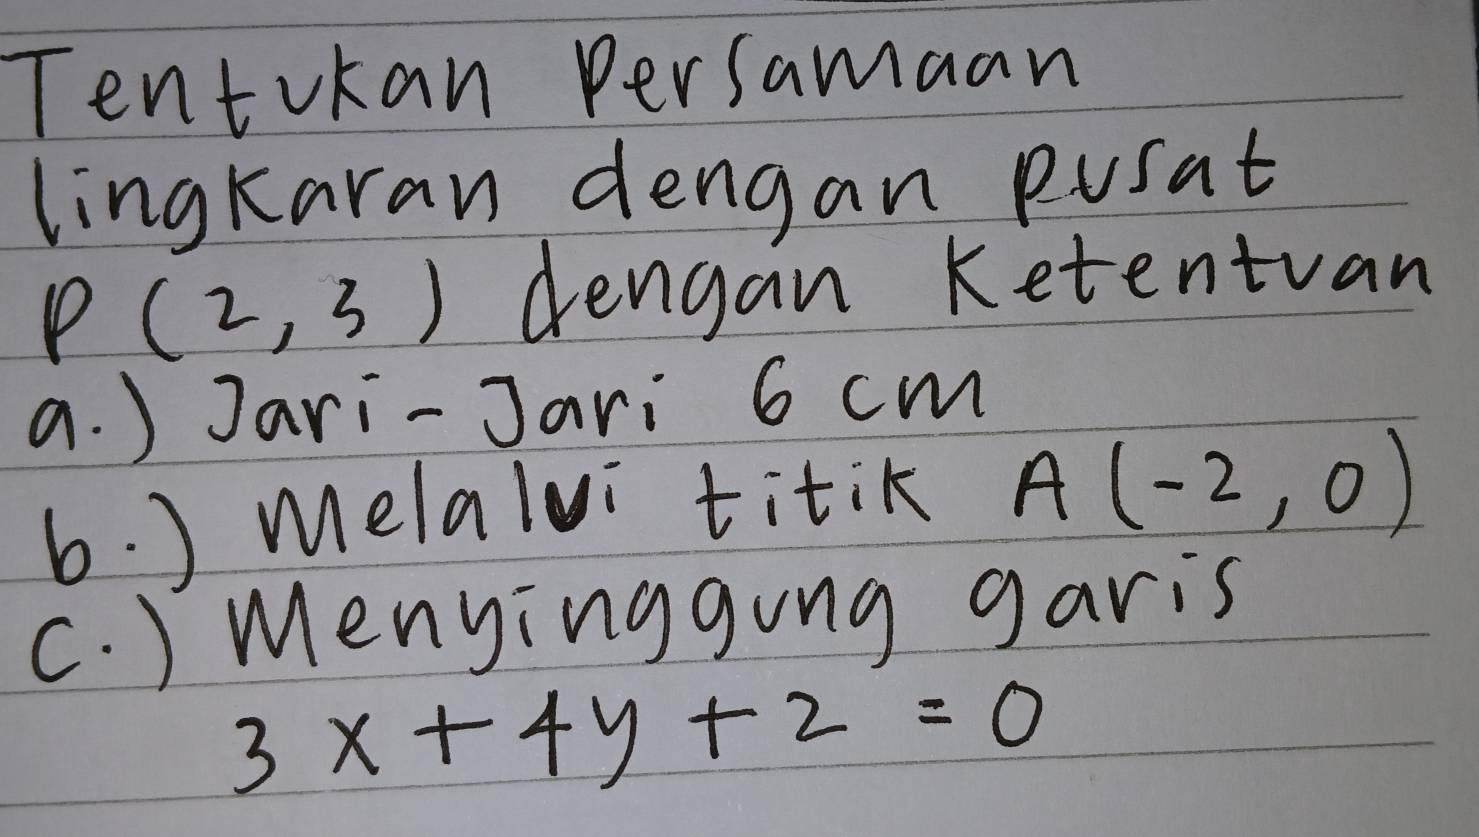 Tentukan Persamaan
lingkaran dengan pusat
P (2,3) dengan Ketentuan
a.) Jari-Jari 6 cm
b.) Melalui titik A (-2,0)
c.) Menyinggung garis
3x + 4y + 2 = 0